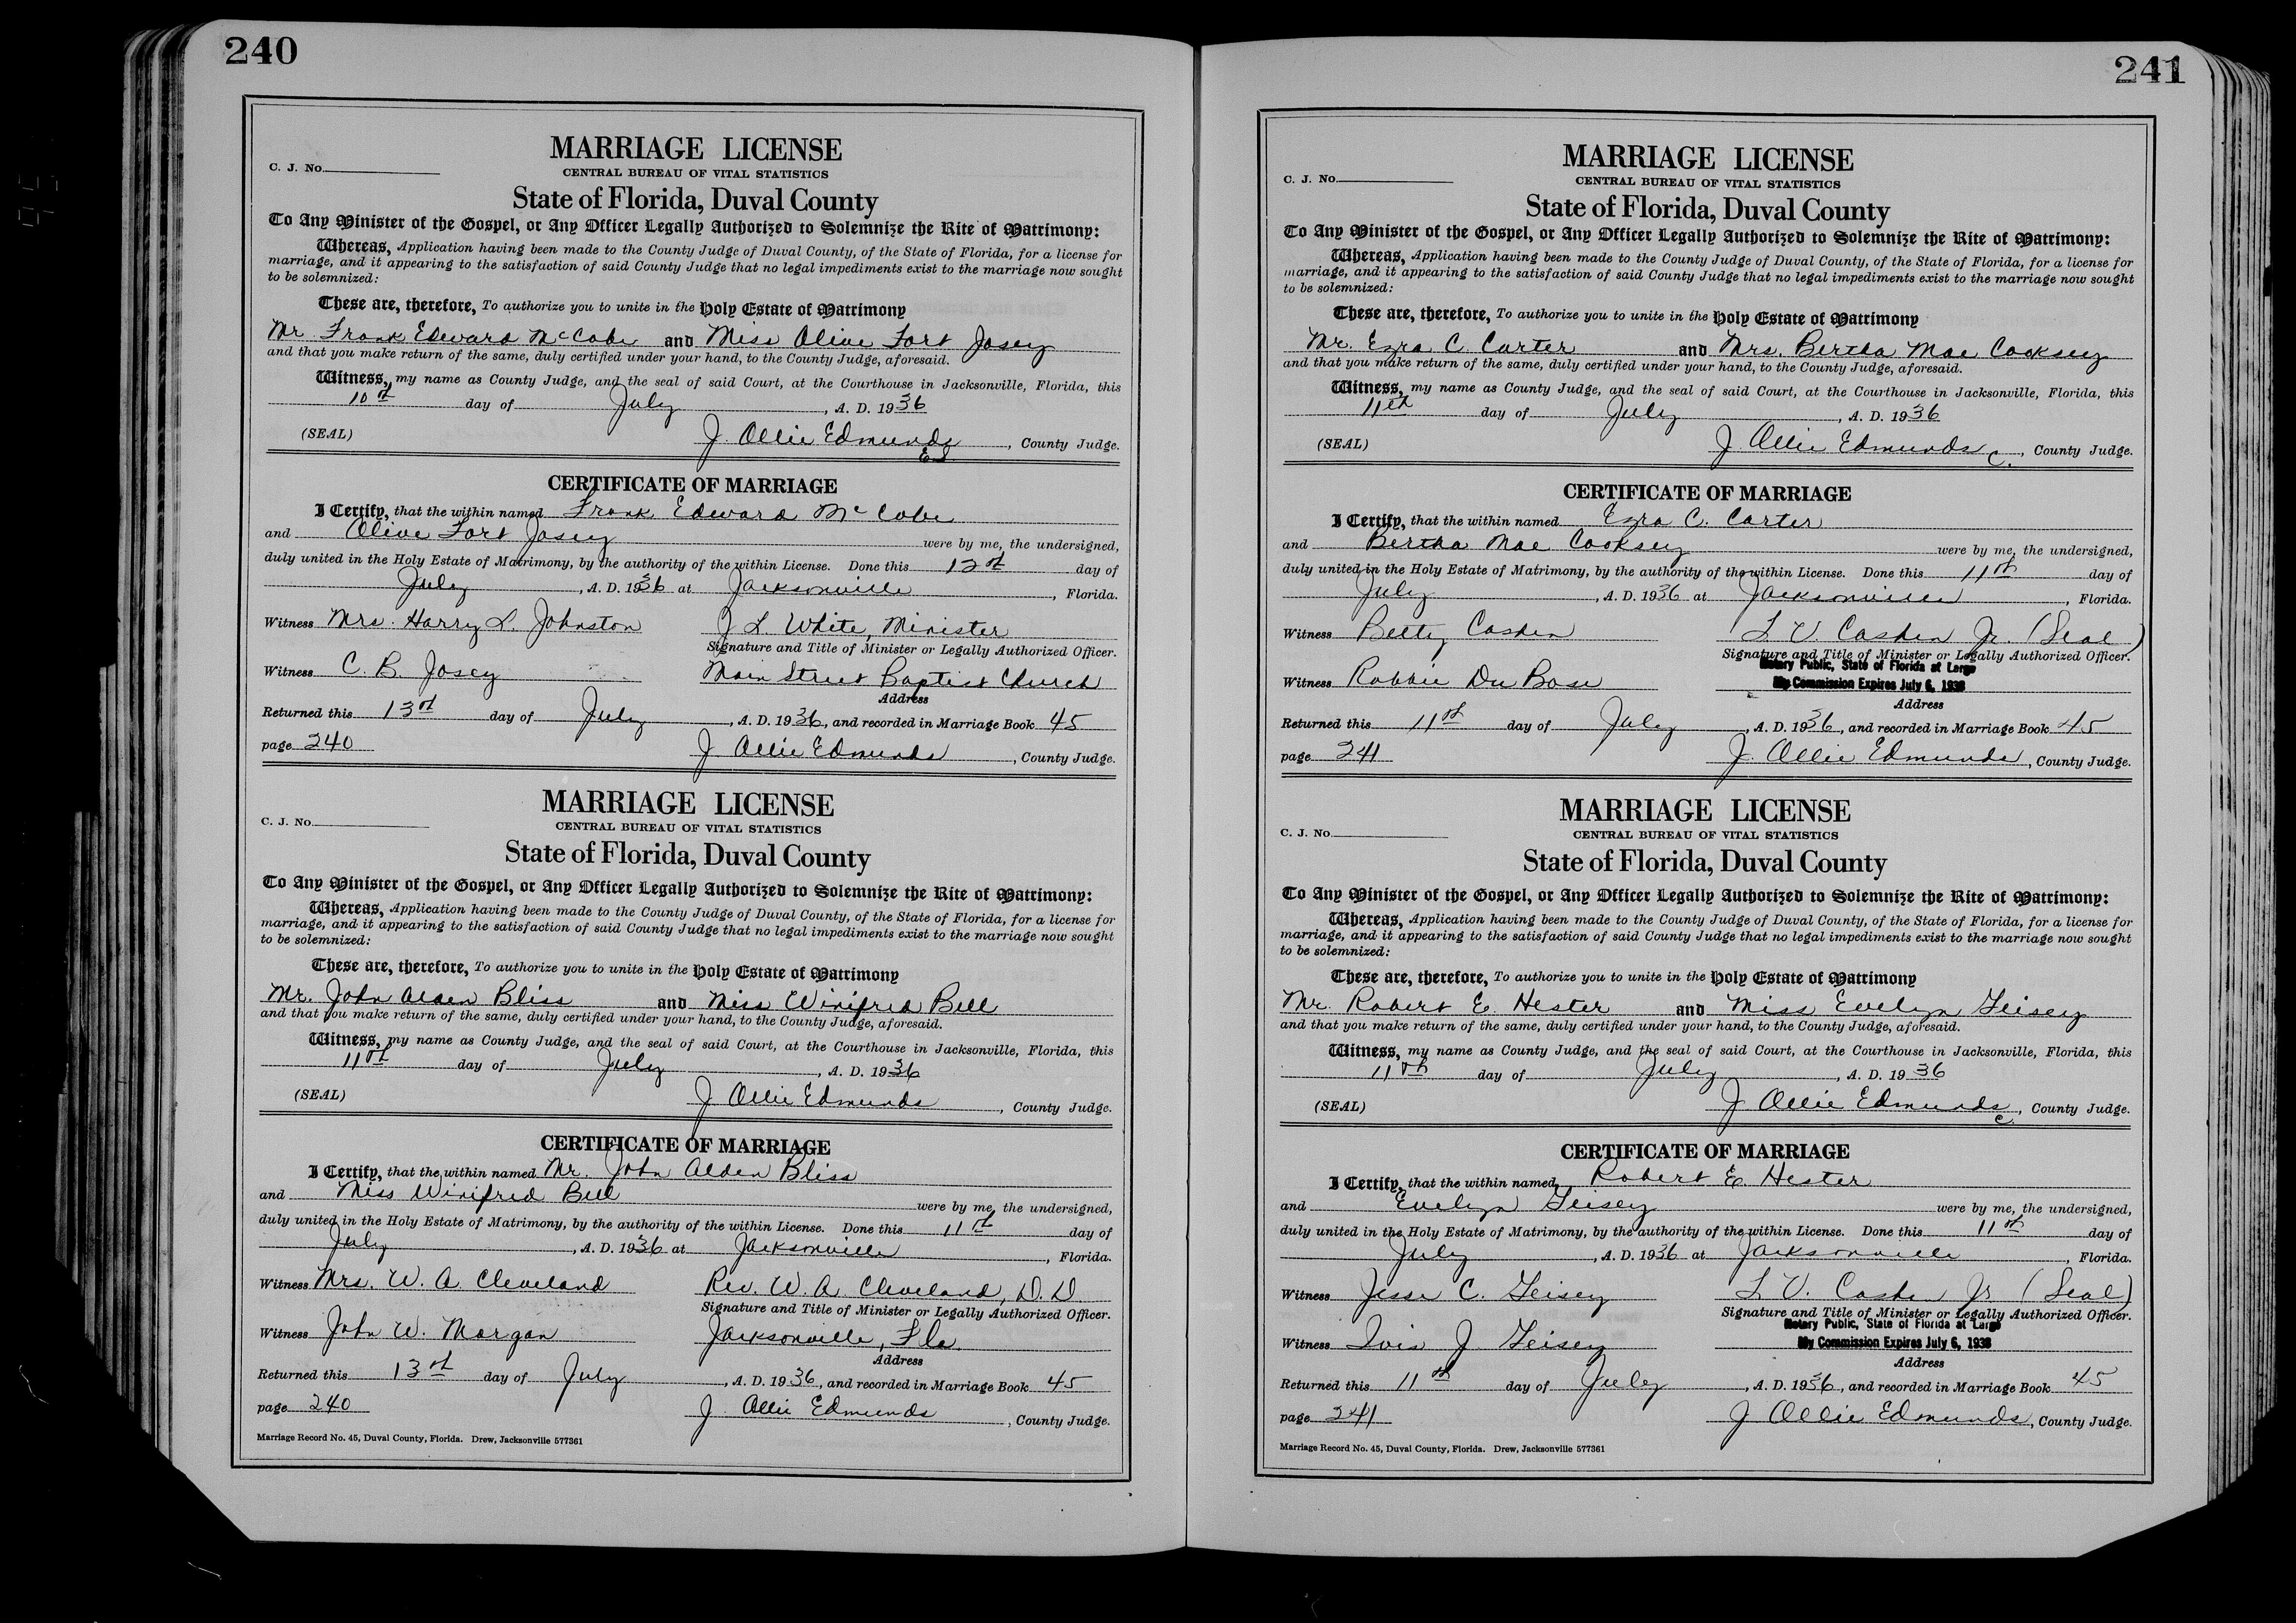 240
MARRIAGE LICENSE
C. J. No.
CENTRAL BUREAU OF VITAL STATISTICS
State of Florida, Duval County
To Any Minister of the Gospel, or Any Officer Legally Authorized to Solemnize the Rite of Matrimony:
Whereas, Application having been made to the County Judge of Duval County, of the State of Florida, for a license for
marriage, and it appearing to the satisfaction of said County Judge that no legal impediments exist to the marriage now sought
to be solemnized:
These are, therefore, To authorize you to unite in the Holy Estate of Matrimony
Mr. Frank Edward McCabe and Miss Olive Fort Josey
and that you make return of the same, duly certified under your hand, to the County Judge, aforesaid.
Witness, my name as County Judge, and the seal of said Court, at the Courthouse in Jacksonville, Florida, this
10th day of July, A. D. 1936
(SEAL) J. Ollie Edmunds, County Judge.
CERTIFICATE OF MARRIAGE
I Certify, that the within named Frank Edward McCabe
and Olive Fort Josey were by me, the undersigned,
duly united in the Holy Estate of Matrimony, by the authority of the within License. Done this 12th day of
July, A. D. 1936 at Jacksonville, Florida.
Witness Mrs. Harry L. Johnston J L White, Minister
Signature and Title of Minister or Legally Authorized Officer.
Witness C. B. Josey Main Street Baptist Church
Address
Returned this 13th day of July, A. D. 1936, and recorded in Marriage Book 45
page 240 J. Ollie Edmunds, County Judge.
MARRIAGE LICENSE
C. J. No.
CENTRAL BUREAU OF VITAL STATISTICS
State of Florida, Duval County
To Any Minister of the Gospel, or Any Officer Legally Authorized to Solemnize the Rite of Matrimony:
Whereas, Application having been made to the County Judge of Duval County, of the State of Florida, for a license for
marriage, and it appearing to the satisfaction of said County Judge that no legal impediments exist to the marriage now sought
to be solemnized:
These are, therefore, To authorize you to unite in the Holy Estate of Matrimony
Mr. John Alden Bliss and Miss Winifred Bell
and that you make return of the same, duly certified under your hand, to the County Judge, aforesaid.
Witness, my name as County Judge, and the seal of said Court, at the Courthouse in Jacksonville, Florida, this
11th day of July, A. D. 1936
(SEAL) J Ollie Edmunds, County Judge.
CERTIFICATE OF MARRIAGE
I Certify, that the within named Mr. John Alden Bliss
and Miss Winifred Bell were by me, the undersigned,
duly united in the Holy Estate of Matrimony, by the authority of the within License. Done this 11th day of
July, A. D. 1936 at Jacksonville, Florida.
Witness Mrs. W. A. Cleveland Rev. W. A. Cleveland, D. D.
Signature and Title of Minister or Legally Authorized Officer.
Witness John W. Morgan Jacksonville, Fla.
Address
Returned this 13th day of July, A. D. 1936, and recorded in Marriage Book 45
page 240 J. Ollie Edmunds, County Judge.
Marriage Record No. 45, Duval County, Florida. Drew, Jacksonville 577361
241
MARRIAGE LICENSE
C. J. No.
CENTRAL BUREAU OF VITAL STATISTICS
State of Florida, Duval County
To Any Minister of the Gospel, or Any Officer Legally Authorized to Solemnize the Rite of Matrimony:
Whereas, Application having been made to the County Judge of Duval County, of the State of Florida, for a license for
marriage, and it appearing to the satisfaction of said County Judge that no legal impediments exist to the marriage now sought
to be solemnized:
These are, therefore, To authorize you to unite in the Holy Estate of Matrimony
Mr. Ezra C. Carter and Mrs. Bertha Mae Cooksey
and that you make return of the same, duly certified under your hand, to the County Judge, aforesaid.
Witness, my name as County Judge, and the seal of said Court, at the Courthouse in Jacksonville, Florida, this
11th day of July, A. D. 1936
(SEAL) J Ollie Edmunds C., County Judge.
CERTIFICATE OF MARRIAGE
I Certify, that the within named Ezra C. Carter
and Bertha Mae Cooksey were by me, the undersigned,
duly united in the Holy Estate of Matrimony, by the authority of the within License. Done this 11th day of
July, A. D. 1936 at Jacksonville, Florida.
Witness Betty Cashen L V Cashen Jr. (Seal)
Signature and Title of Minister or Legally Authorized Officer.
Notary Public, State of Florida at Large
Witness Robbie Du Bose My Commission Expires July 6, 1938
Address
Returned this 11th day of July, A. D. 1936, and recorded in Marriage Book 45
page 241 J. Ollie Edmunds, County Judge.
MARRIAGE LICENSE
C. J. No.
CENTRAL BUREAU OF VITAL STATISTICS
State of Florida, Duval County
To Any Minister of the Gospel, or Any Officer Legally Authorized to Solemnize the Rite of Matrimony:
Whereas, Application having been made to the County Judge of Duval County, of the State of Florida, for a license for
marriage, and it appearing to the satisfaction of said County Judge that no legal impediments exist to the marriage now sought
to be solemnized:
These are, therefore, To authorize you to unite in the Holy Estate of Matrimony
Mr. Robert E. Hester and Miss Evelyn Geisey
and that you make return of the same, duly certified under your hand, to the County Judge, aforesaid.
Witness, my name as County Judge, and the seal of said Court, at the Courthouse in Jacksonville, Florida, this
11th day of July, A. D. 1936
(SEAL) J Ollie Edmunds C., County Judge.
CERTIFICATE OF MARRIAGE
I Certify, that the within named Robert E. Hester
and Evelyn Geisey were by me, the undersigned,
duly united in the Holy Estate of Matrimony, by the authority of the within License. Done this 11th day of
July, A. D. 1936 at Jacksonville, Florida.
Witness Jesse C. Geisey L V. Cashen Jr (Seal)
Signature and Title of Minister or Legally Authorized Officer.
Notary Public, State of Florida at Large
Witness J. Geisey My Commission Expires July 6, 1938
Address
Returned this 11th day of July, A. D. 1936, and recorded in Marriage Book 45
page 241 J Ollie Edmunds, County Judge.
Marriage Record No. 45, Duval County, Florida. Drew, Jacksonville 577361